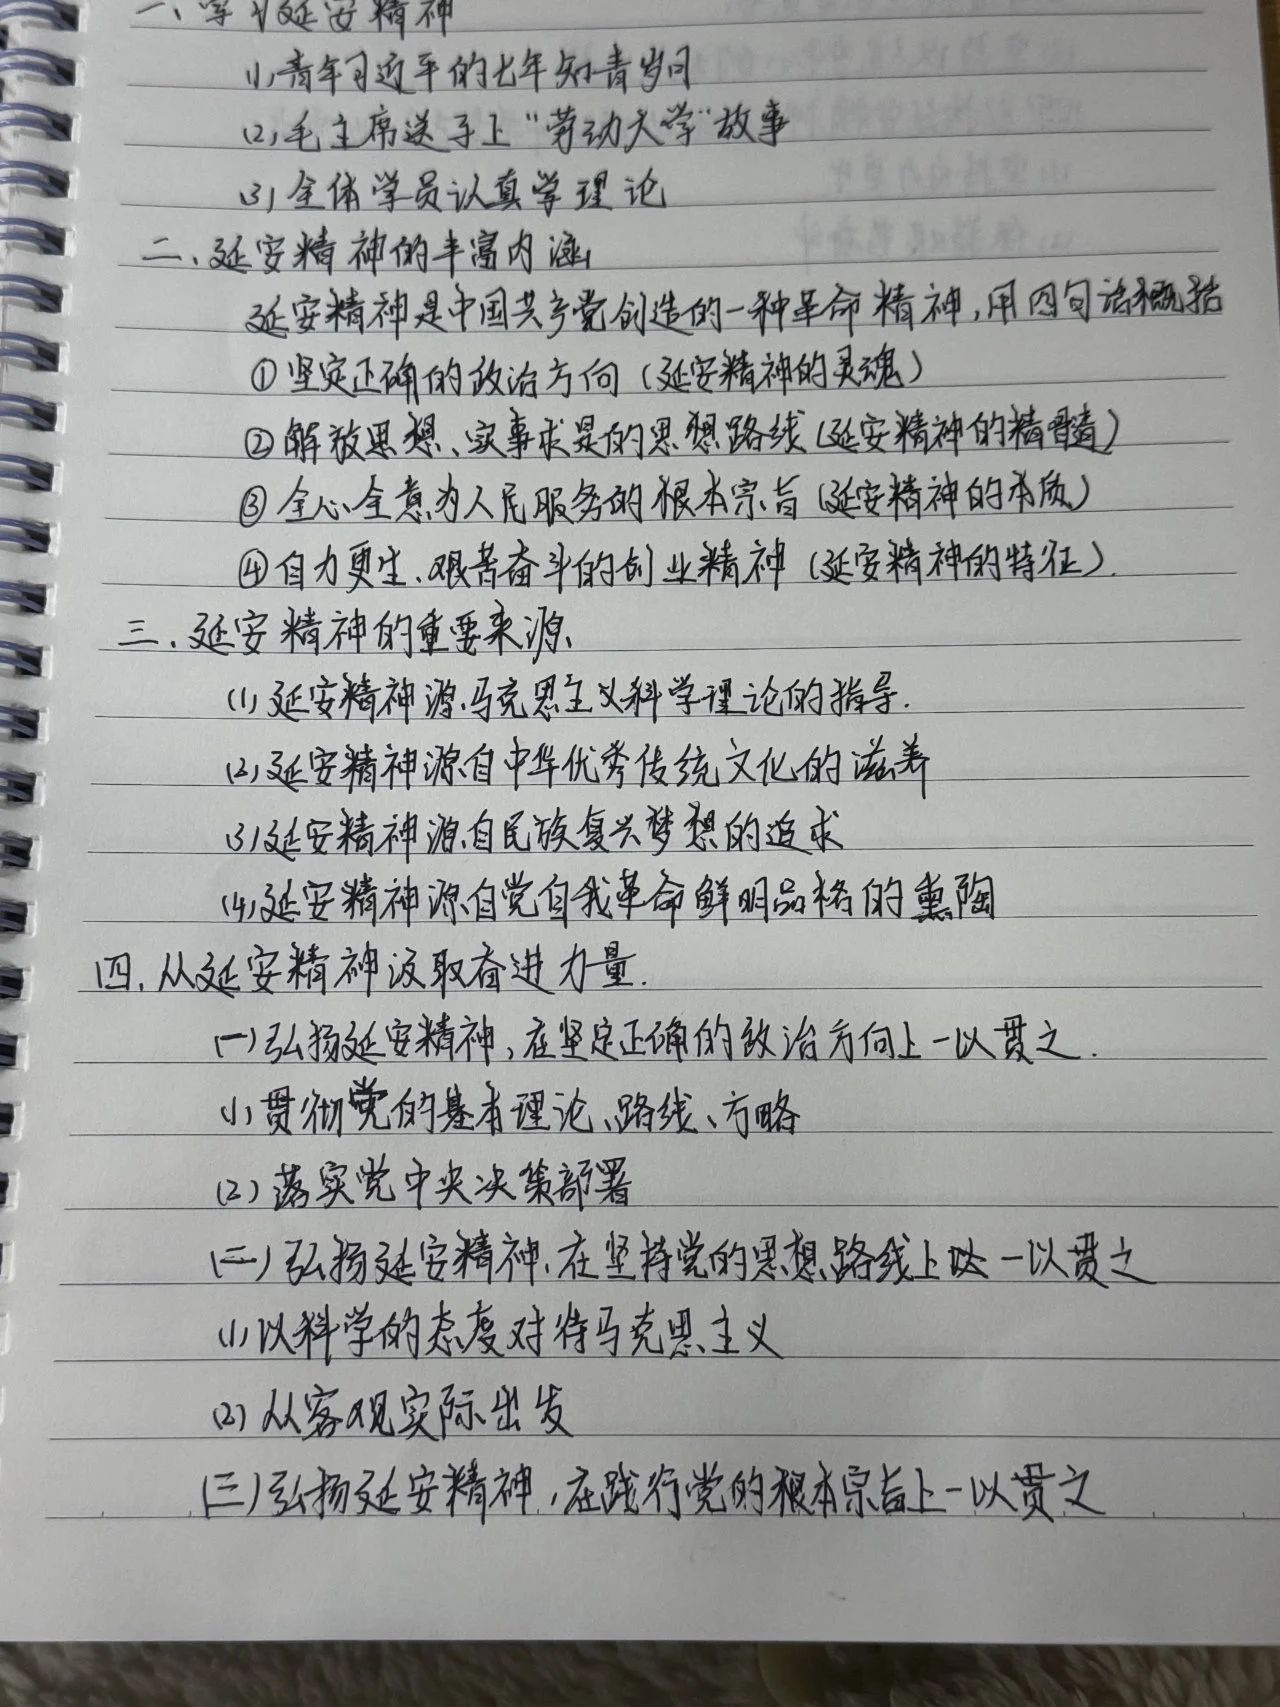 一、学习延安精神
(1)青年习近平的七年知青岁月
(2)毛主席送子上“劳动大学”故事
(3)全体学员认真学理论
二、延安精神的丰富内涵
延安精神是中国共产党创造的一种革命精神,用四句话概括
①坚定正确的政治方向(延安精神的灵魂)
②解放思想、实事求是的思想路线(延安精神的精髓)
③全心全意为人民服务的根本宗旨(延安精神的本质)
④自力更生、艰苦奋斗的创业精神(延安精神的特征).
三.延安精神的重要来源
(1)延安精神源马克思主义科学理论的指导.
(2)延安精神源自中华优秀传统文化的滋养
(3)延安精神源自民族复兴梦想的追求
(4)延安精神源自党自我革命鲜明品格的熏陶
四.从延安精神汲取奋进力量.
(一)弘扬延安精神,在坚定正确的政治方向上一以贯之.
(1)贯彻党的基本理论、路线、方略
(2)落实党中央决策部署
(二)弘扬延安精神,在坚持党的思想路线上以一以贯之
(1)以科学的态度对待马克思主义
(2)从客观实际出发
(三)弘扬延安精神,在践行党的根本宗旨上一以贯之